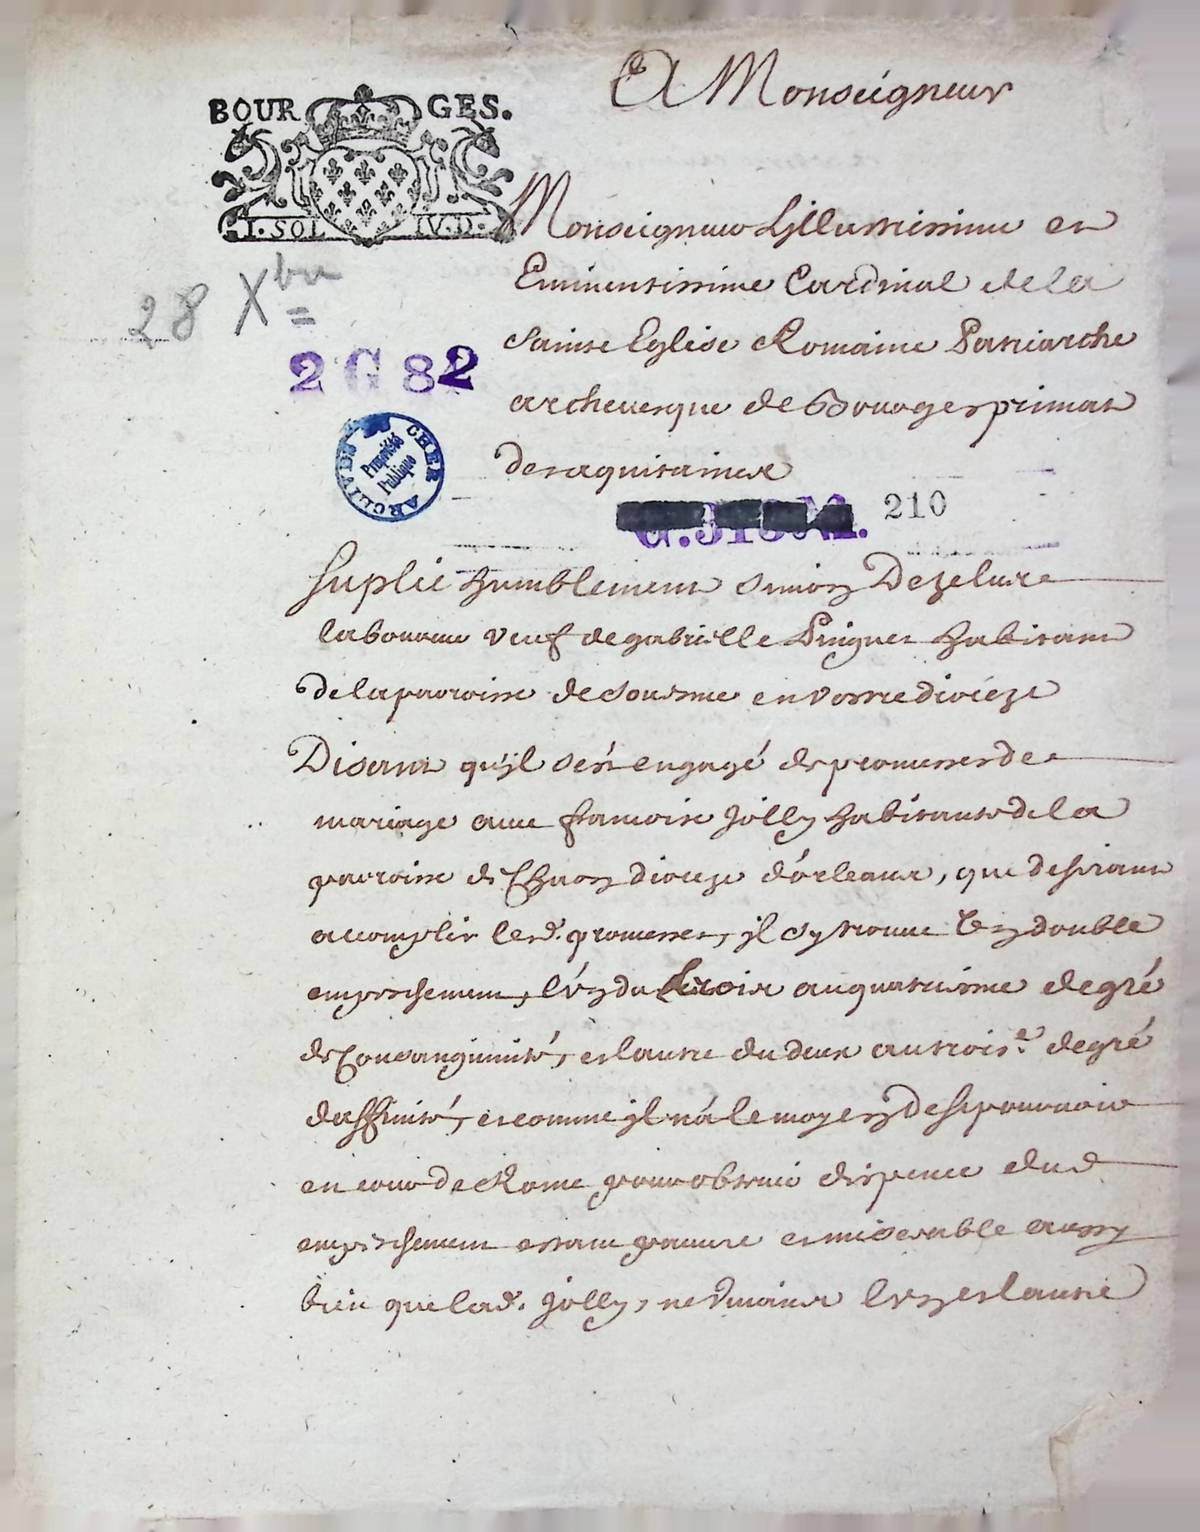 A Monseigneur
BOURGES.
I. SOL IV. D.
Monseigneur L'jllustrissime et
Eminentissime Cardinal de la
28 Xbre
Sainte Eglise Romaine Patriarche
2 G 82
archevesque de Bourges primat
des aquitaines
ARCHIV. DU CHER
Propriété Publique
210
Suplie humblement Simon Dezelure
laboureur veuf de gabrielle Pinguet habitant
de la parroisse de Souesme en vostre diocéze
Disant qu'jl s'ést engagé de promesses de
mariage avec francoise Jolly habitante de la
parroisse de Chaon dioceze d'órleans, que desirant
accomplir lesd. promesses, jl s'y trouve un double
empeschement, l'un du trois au quatriesme degré
de Consanginnité, et lautre du deux au trois.e degré
d'affinité, et comme jl n'á le moyen de se pourvoir
en cour de Rome pour obtenir dispence dud
empeschement estant pauvre et miserable aussy
bien que lad. Jolly, ne vivants l'un et lautre